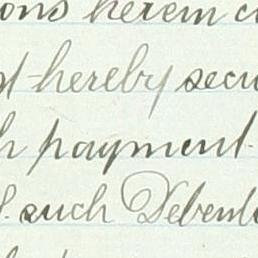 ons herein c
d hereby secu
h payment
such Debent